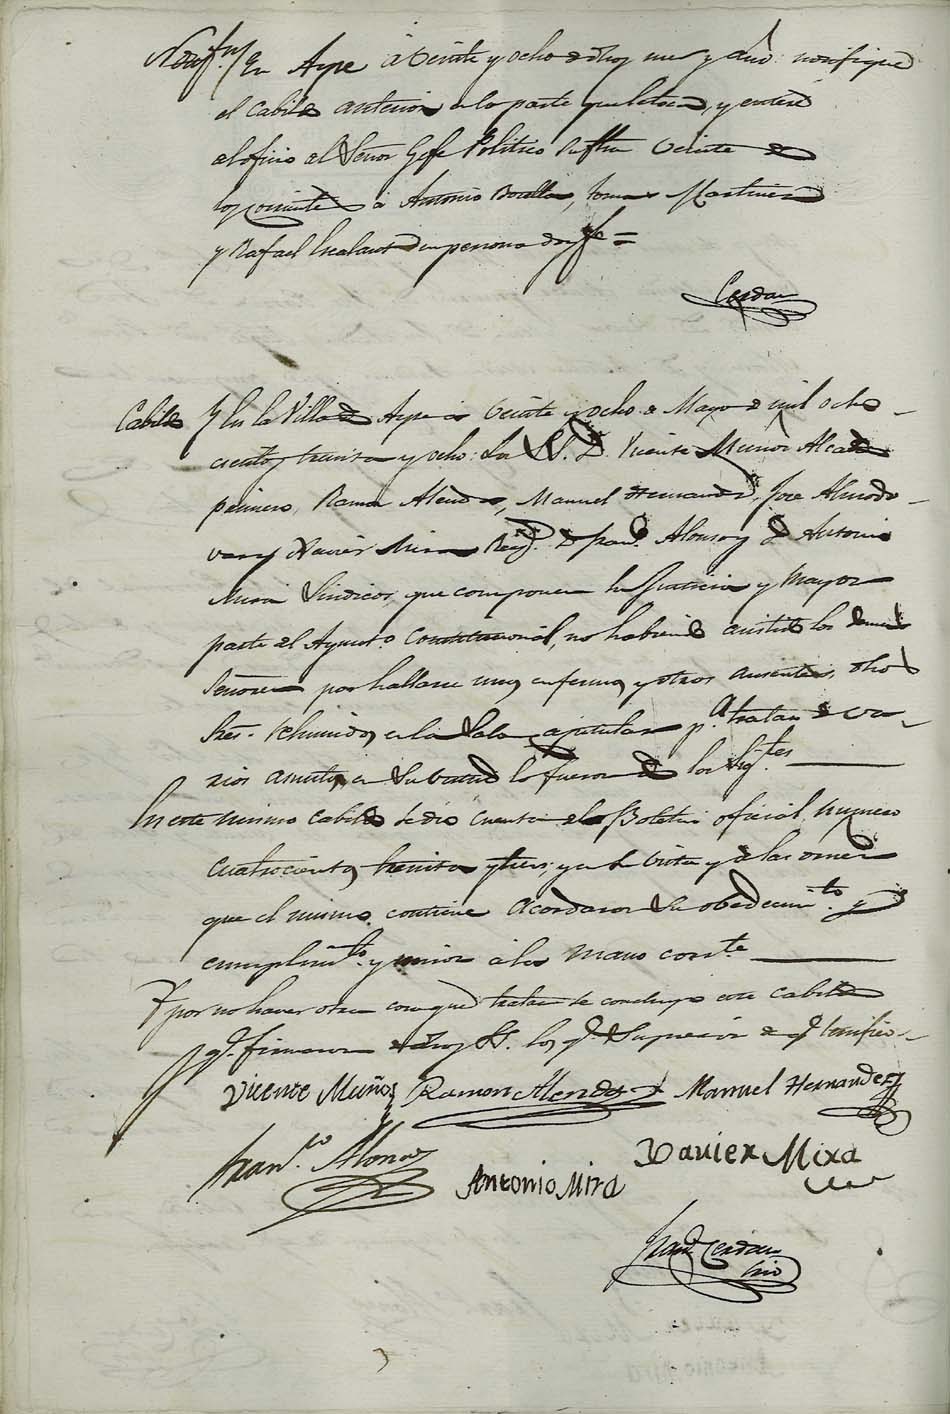 En Aspe á veinte y ocho de dhos mes y año notifique
el Cabildo anterior a la parte que le toca, y enteré
del oficio del Señor Gefe Politico su fha veinte de
los corrientes á Antonio Botella, Tomas Martinez
y Rafael en persona doy fe =
Cerdan
Cabildo Y En la Villa de Aspe a veinte y ocho de Mayo de mil ocho
cientos treinta y ocho: Los SS. D. Vicente Muñoz Alcalde
primero, Ramon Alendo, Manuel Hernandez, Jose Almodo
var y Xavier Mira Regs. D. Fran.co Alonso y D. Antonio
Mira Sindicos, que componen la Justicia y Mayor
parte del Ayunt.o Constitucional, no habiendo asistido los demas
Señores por hallarse unos enfermos y otros ausentes, dhos
Sres. rehunidos en la Sala capitular p.a tratar de va
rios asuntos, en su virtud lo fueron de los sig.tes
En este mismo cabildo se dió cuenta del Boletin oficial numero
cuatrocientos treinta y tres, y en su vista y de las ordenes
que el mismo contiene acordaron su obedecim.to y
cumplim.to y unirse á la mano corr.te
Y por no haver otra cosa que tratar se concluyo este cabildo
q.e firmaron dhos SS. los q.e supieron de q.e certifico
Vicente Muñoz Ramon Alendo Manuel Hernandez
Fran.co Alonso
Antonio Mira Xavier Mira
Fran.co Cerdan
Srio